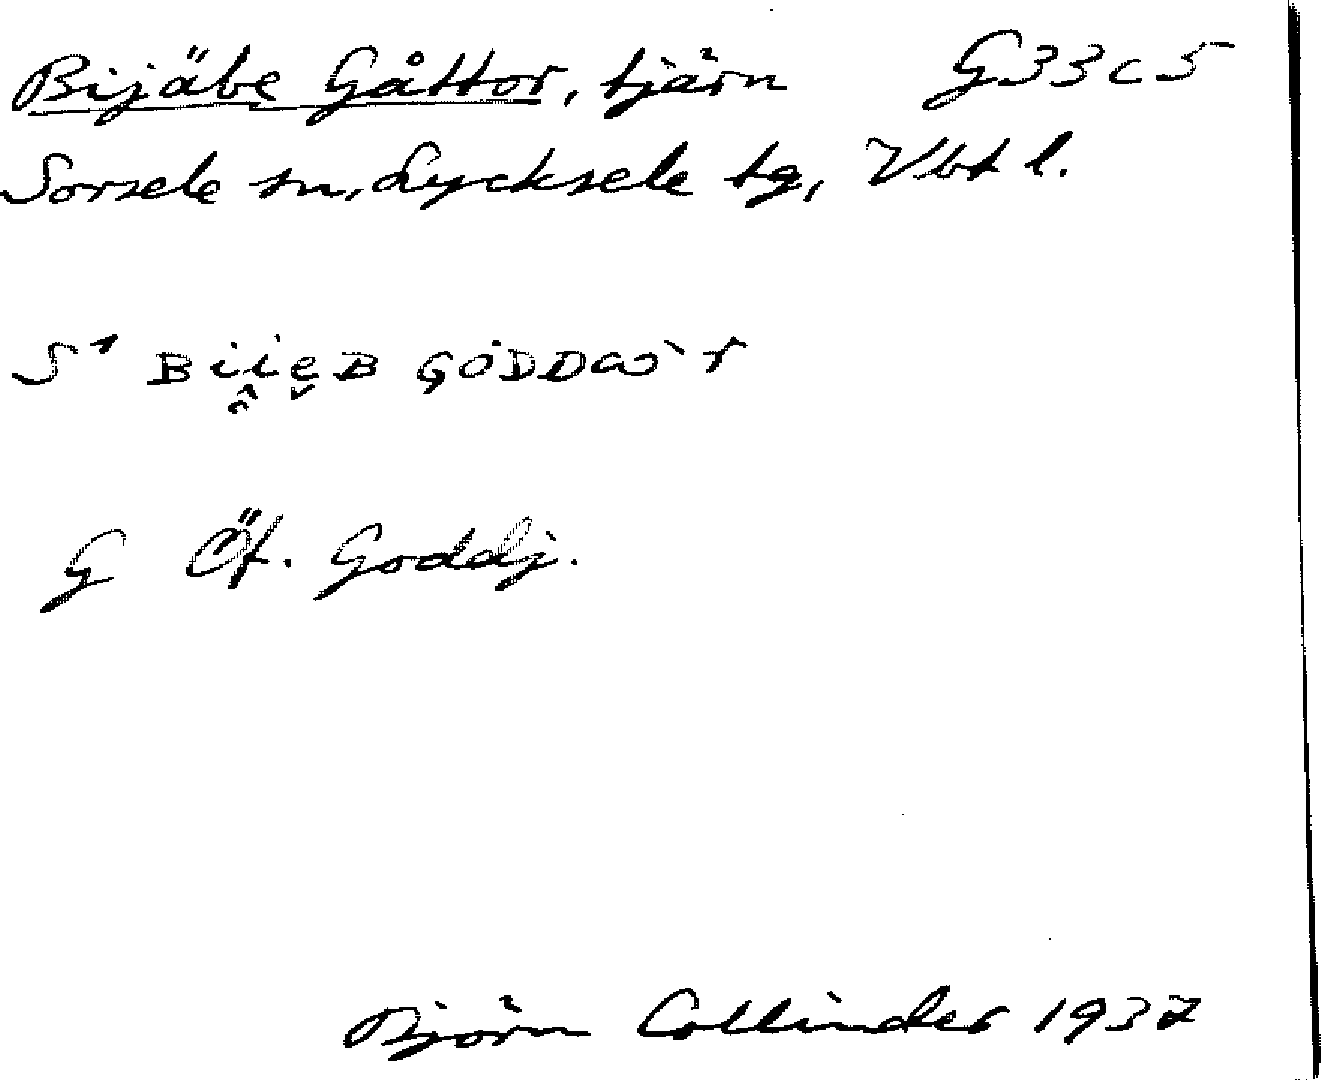 Bijäbe Gåttor, tjärn G33c5
Sorsele sn, Lycksele tg, Vbt l.
G Öf. Goddj.
Björn Collinder 1937